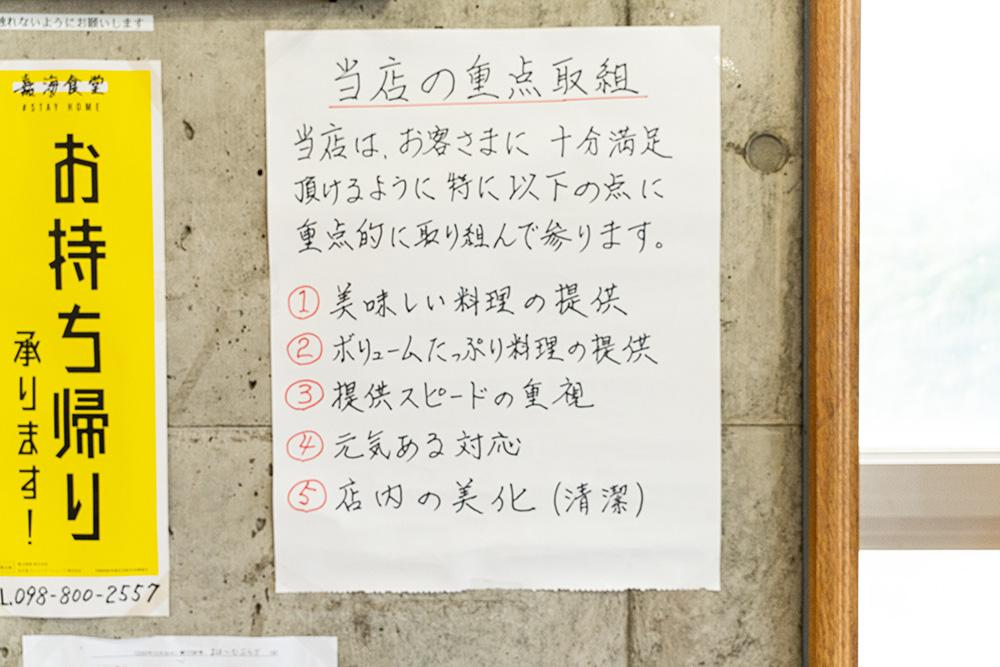 触れないようにお願いします
嘉海食堂
#STAY HOME
お持ち帰り
承ります!
L.098-800-2557
当店の重点取組
当店は、お客さまに 十分満足
頂けるように 特に以下の点に
重点的に取り組んで参ります。
① 美味しい料理の提供
② ボリュームたっぷり料理の提供
③ 提供スピードの重視
④ 元気ある対応
⑤ 店内の美化 (清潔)